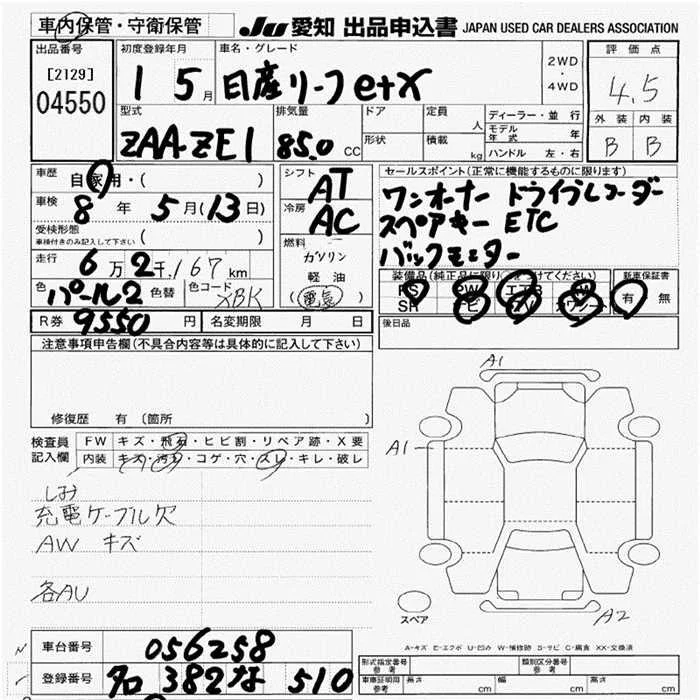 車内保管・守衛保管 JU 愛知 出品申込書 JAPAN USED CAR DEALERS ASSOCIATION
出品番号
[2129]
04550
初度登録年月
1 5月
車名・グレード
日産リーフe+X
2WD
・
4WD
評価点
4.5
外装 内装
B B
型式
ZAA-ZE1
排気量
85.0 CC
ドア
形状
定員
人
積載
kg
ディーラー・並行
モデル年式 年
ハンドル 左・右
車歴
自家用・( )
車検
8年5月(13日)
受検形態
車検付きのみ記入して下さい ( )
走行
6万2千,167km
色 パール2 色替
色コード XBK
R券 9550円 名変期限 月 日
シフト
AT
冷房
AC
燃料
ガソリン
軽油
(電気)
セールスポイント(正常に機能するものに限ります)
ワンオーナー ドライブレコーダー
スペアキー ETC
バックモニター
装備品(純正品に限り○を付けてください) 新車保証書
PS PW エアB AW
SR ナビ TV カワシート
有 無
後日品
注意事項申告欄(不具合内容等は具体的に記入して下さい)
修復歴 有 〔箇所 〕
検査員
記入欄
FW キズ・飛石・ヒビ割・リペア跡・X要
内装 キズ・汚レ・コゲ・穴・スレ・キレ・破レ
しみ
充電ケーブル欠
AW キズ
各AU
A1
A1
A2
スペア
A-キズ E-エクボ U-凹み W-補修跡 S-サビ C-腐食 XX-交換済
車台番号 056258
登録番号 382 な 510
形式指定番号
参考
類別区分番号
参考
車庫証明用
参考
長さ cm 幅 cm 高さ cm